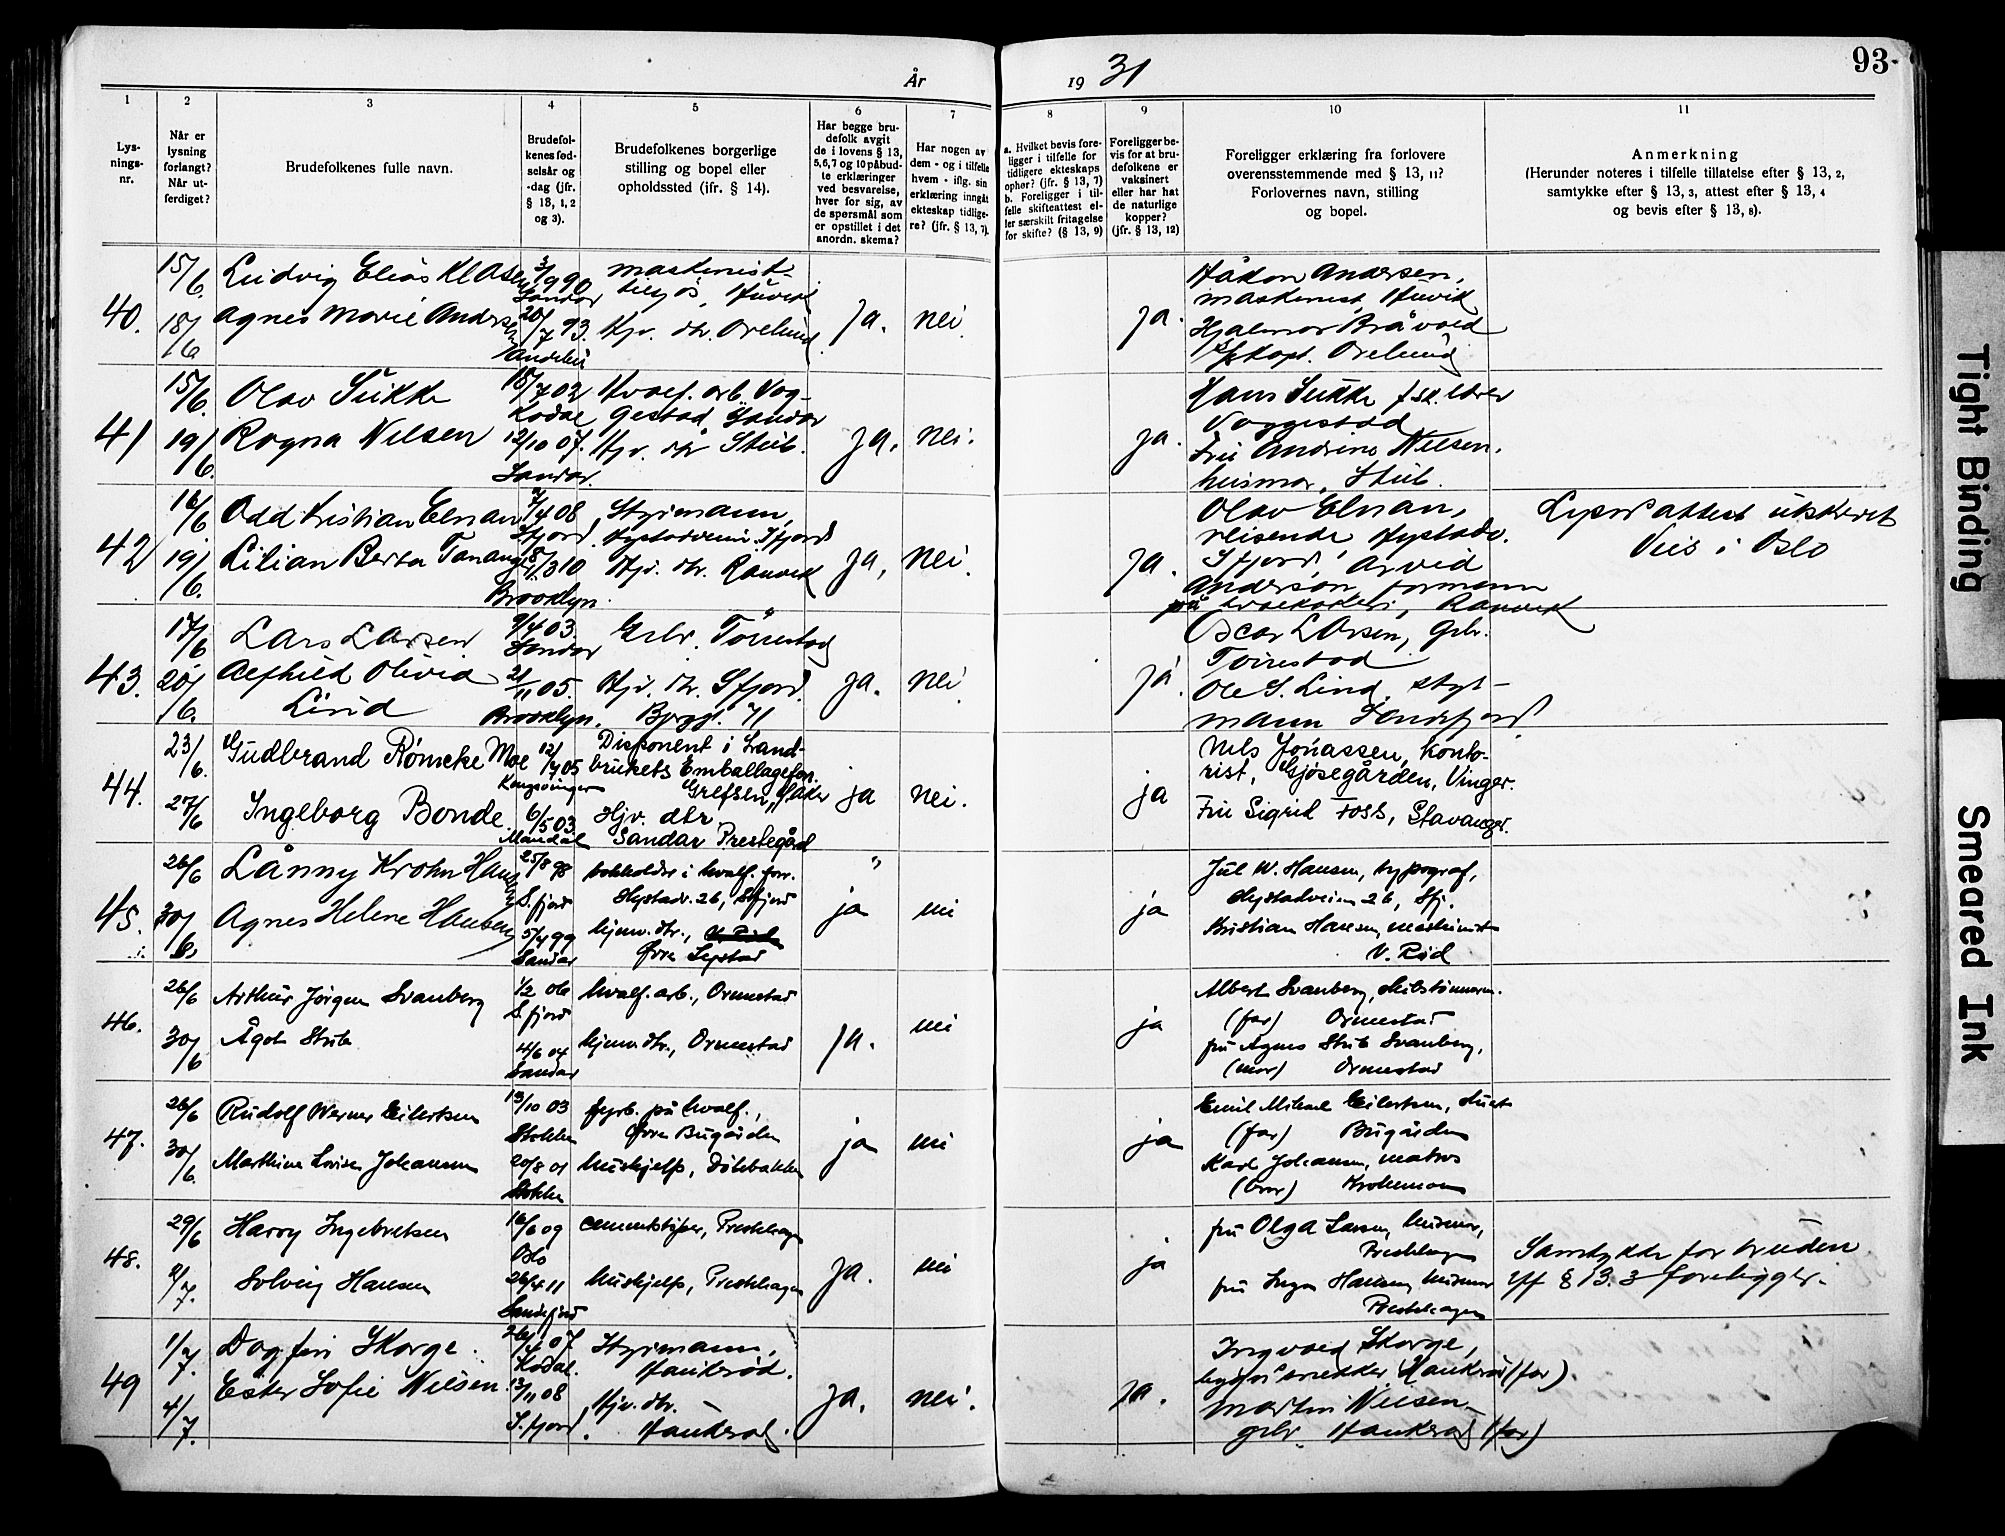 År 1931
93
1
Lys-
nings-
nr.
2
Når er
lysning
forlangt?
Når ut-
ferdiget?
3
Brudefolkenes fulle navn.
4
Brudefol-
kenes fød-
selsår og
-dag (jfr.
§ 13, 1, 2
og 3).
5
Brudefolkenes borgerlige
stilling og bopel eller
opholdssted (ifr. § 14).
6
Har begge bru-
defolk avgit
de i lovens § 13,
5,6,7 og 10 påbud-
te erklæringer
ved besvarelse,
hver for sig, av
de spørsmål som
er opstillet i det
anordn. skema?
7
Har nogen av
dem - og i tilfelle
hvem - iflg. sin
erklæring inngåt
ekteskap tidlige-
re? (jvf. § 13, 7).
8
a. Hvilket bevis fore-
ligger i tilfelle for
tidligere ekteskaps
ophør? (jfr. § 13, 7)
b. Foreligger i til-
felle skifteattest el-
ler særskilt fritagelse
for skifte? (§ 13, 9)
9
Foreligger be-
vis for at bru-
defolkene er
vaksinert
eller har hat
de naturlige
kopper?
(jfr. § 13, 12)
10
Foreligger erklæring fra forlovere
overensstemmende med § 13, 11?
Forlovernes navn, stilling
og bopel.
11
Anmerkning
(Herunder noteres i tilfelle tillatelse efter § 13, 2,
samtykke efter § 13, 3, attest efter § 13, 4
og bevis efter § 13, 8).
40.
15/6.
18/6
Ludvig Elias Klasen
Agnes Marie Andersen
3/9 90
Sandar
20/7 93.
Andebu
maskinist
tilsjøs, Huvik
Hjv. dtr. Orelund
Ja.
nei.
ja.
Håkon Andersen,
maskinist, Huvik
Hjalmar Bråvold
Orelund
41
15/6.
19/6.
Olav Sukke
Ragna Nilsen
15/7 02
Kodal
12/10 07.
Sandar.
Hvalf. arb. Vog-
gestad, Sandar
Hjv. dtr Stub.
ja.
nei.
ja.
Hans Sukke
Voggestad
Fru Andrine Nilsen,
husmor, Stub.
42
16/6
19/6.
Odd Kristian Elnan
Lilian Berta Tanang
7/4 08
Sfjord
3 10
Brooklyn.
Styrmann,
Hystadveien. Sfjord
Hjv. dtr. Ranvik
ja,
nei.
ja.
Olav Elnan,
reisende Hystadv.
Sfjord, Arvid
Anderson, formann
på Ranvik
Lysn.attest utskrevet
Vies i Oslo
43.
17/6
20/6.
Lars Larsen
Alfhild Olivia
Lind
9/4 03.
Sandar
21/11 05.
Brooklyn.
Grbr. Tørrestad
Hjv. dtr. Sfjord.
Bjerggt. 71
ja.
nei.
ja.
Oscar Larsen, grbr.
Ole S. Lind, styr-
mann Sandefjord
44.
23/6.
27/6
Gudbrand Rømcke Moe
Ingeborg Bonde
12/7 05
Kongsvinger
6/5 03.
Mandal
Disponent i Land-
brukets Emballagefor.
Grefsen, Aker
Hjv. dtr.
Sandar Prestegård
ja
nei.
ja
Nils Jonassen, konto-
rist, Gjøsegården, Vinger.
Fru Sigrid Foss, Stavanger.
45.
26/6
30/6
Lånny Krohn Hansen
Agnes Helene Hansen
25/8 98
S.fjord
5/4 99
Sandar
bokholder i hvalf. forr.
Hystadv. 26, Sfjord
hjemv. dtr.,
Øvre Lystad
"
ja
nei
ja
Jul W. Hansen, typograf,
Hystadveien 26, Sfj.
Kristian Hansen, maskinist
V. Rød
46.
26/6
30/6
Arthur Jørgen Svanberg
Ågot Stub
1/2 06
S.fjord
4/6 04
Sandar
hvalf. arb., Ormestad
hjemv. dtr., Ormestad
ja.
nei
ja
Albert Svanberg,
(far) Ormestad
fru Agnes Stub Svanberg,
(mor) Ormestad
47.
26/6
30/6.
Rudolf Werner Eilertsen
Mathine Lovise Johansen
13/10 03
Stokke
20/8 01
Stokke
fyrb. på hvalf.,
Øvre Bugården
hushjelp, Dølebakken
ja
nei
ja
Emil Mikael Eilertsen,
(far) Bugården
Karl Johansen, matros
(bror)
48.
29/6
2/7.
Harry Ingebretsen
Solveig Hansen
16/6 09
Oslo
26/4 11
Sandefjord
cementstøper, Prestehagen
hushjelp, Prestehagen
ja.
nei
ja
fru Olga Larsen, husmor,
Prestehagen
fru Inga Hansen, husmor
Prestehagen
Samtykke for bruden
iflg § 13. 3 foreligger.
49
1/7.
4/7.
Dagfin Skorge.
Ester Sofie Nilsen.
26/4 07
Kodal.
13/11 08
S.fjord.
Styrmann,
Haukerød.
Hjv. dtr.
Haukerød.
ja.
nei.
ja.
Ingvald Skorge,
snekker, Haukerød (far).
Martin Nilsen
grbr. Haukerød (far)
Tight Binding
Smeared Ink